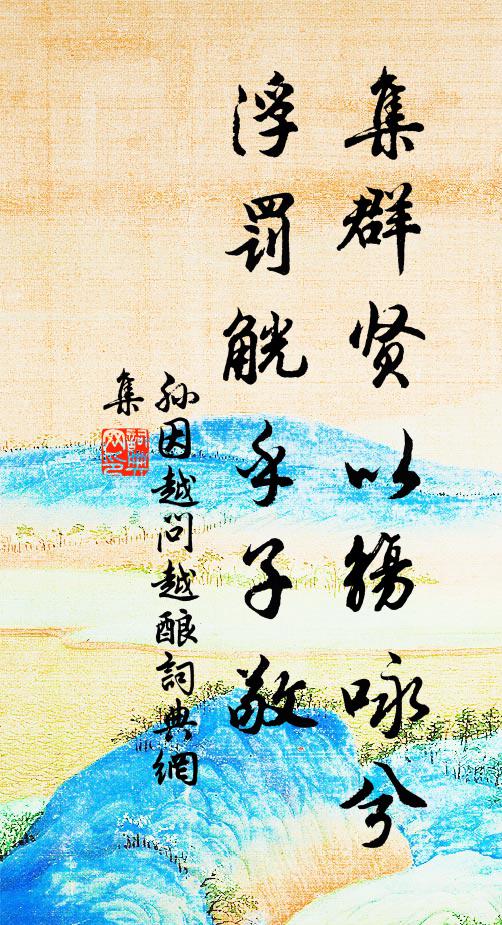 集群贤以觞咏兮
浮罚觥乎子敬
孙因越问越酿詞典網
集